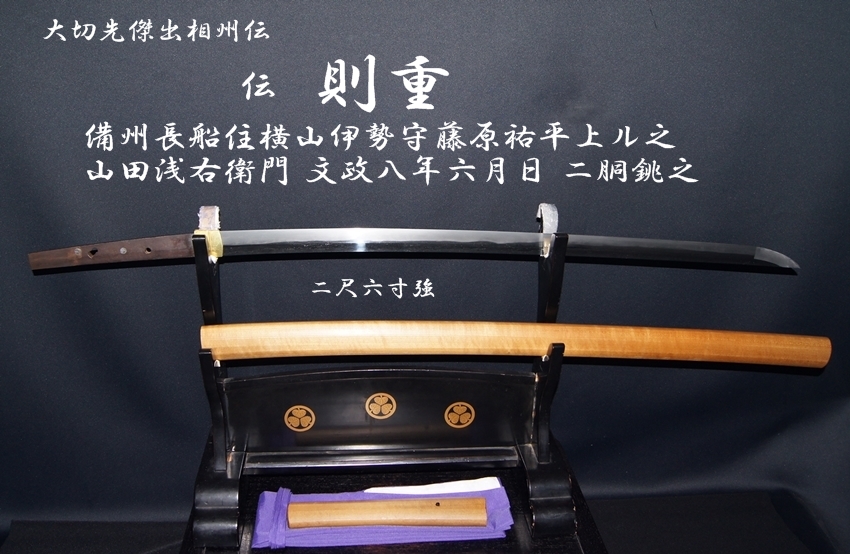 大切先傑出相州伝
伝 則重
備州長船住横山伊勢守藤原祐平上ル之
山田浅右衛門 文政八年六月日 二胴銚之
二尺六寸強